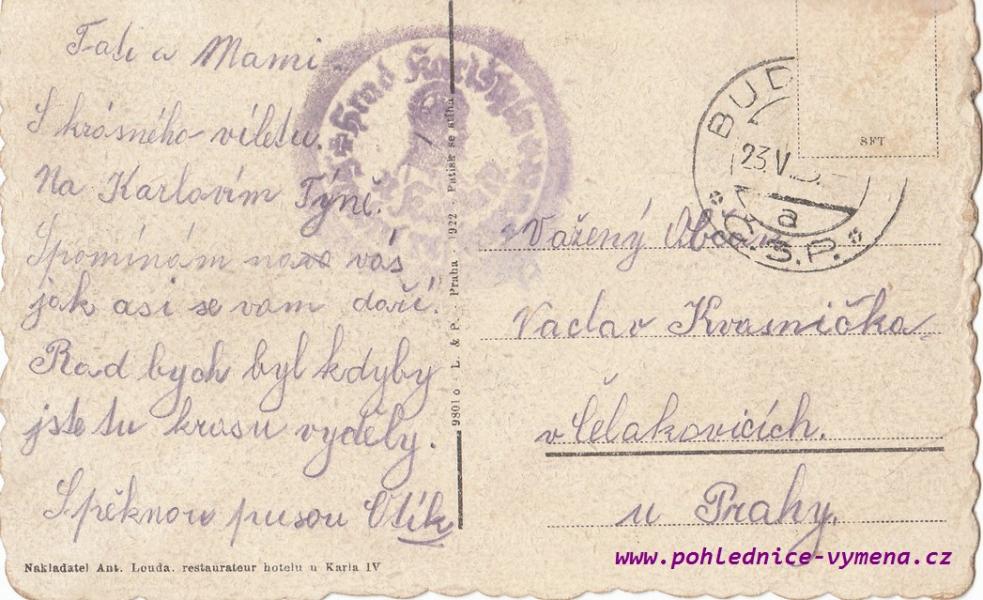 Tati a Mami.
S krásného víletu.
Na Karlovím Týně.
Spomínam na vás
jak asi se vam daří.
Rad bych byl kdyby
jste tu krasu vyděly.
S pěknou pusou Otík
Nakladatel Ant. Louda. restaurateur hotelu u Karla IV
9801 o L. & P. Praha 1922 - Patisk se stíhá
Hrad Karlštýn
BUD
23.V
a
Č.S.P.
SFT
Važený
Vaclav Kvasnička
v Čelakovicích.
u Prahy.
www.pohlednice-vymena.cz